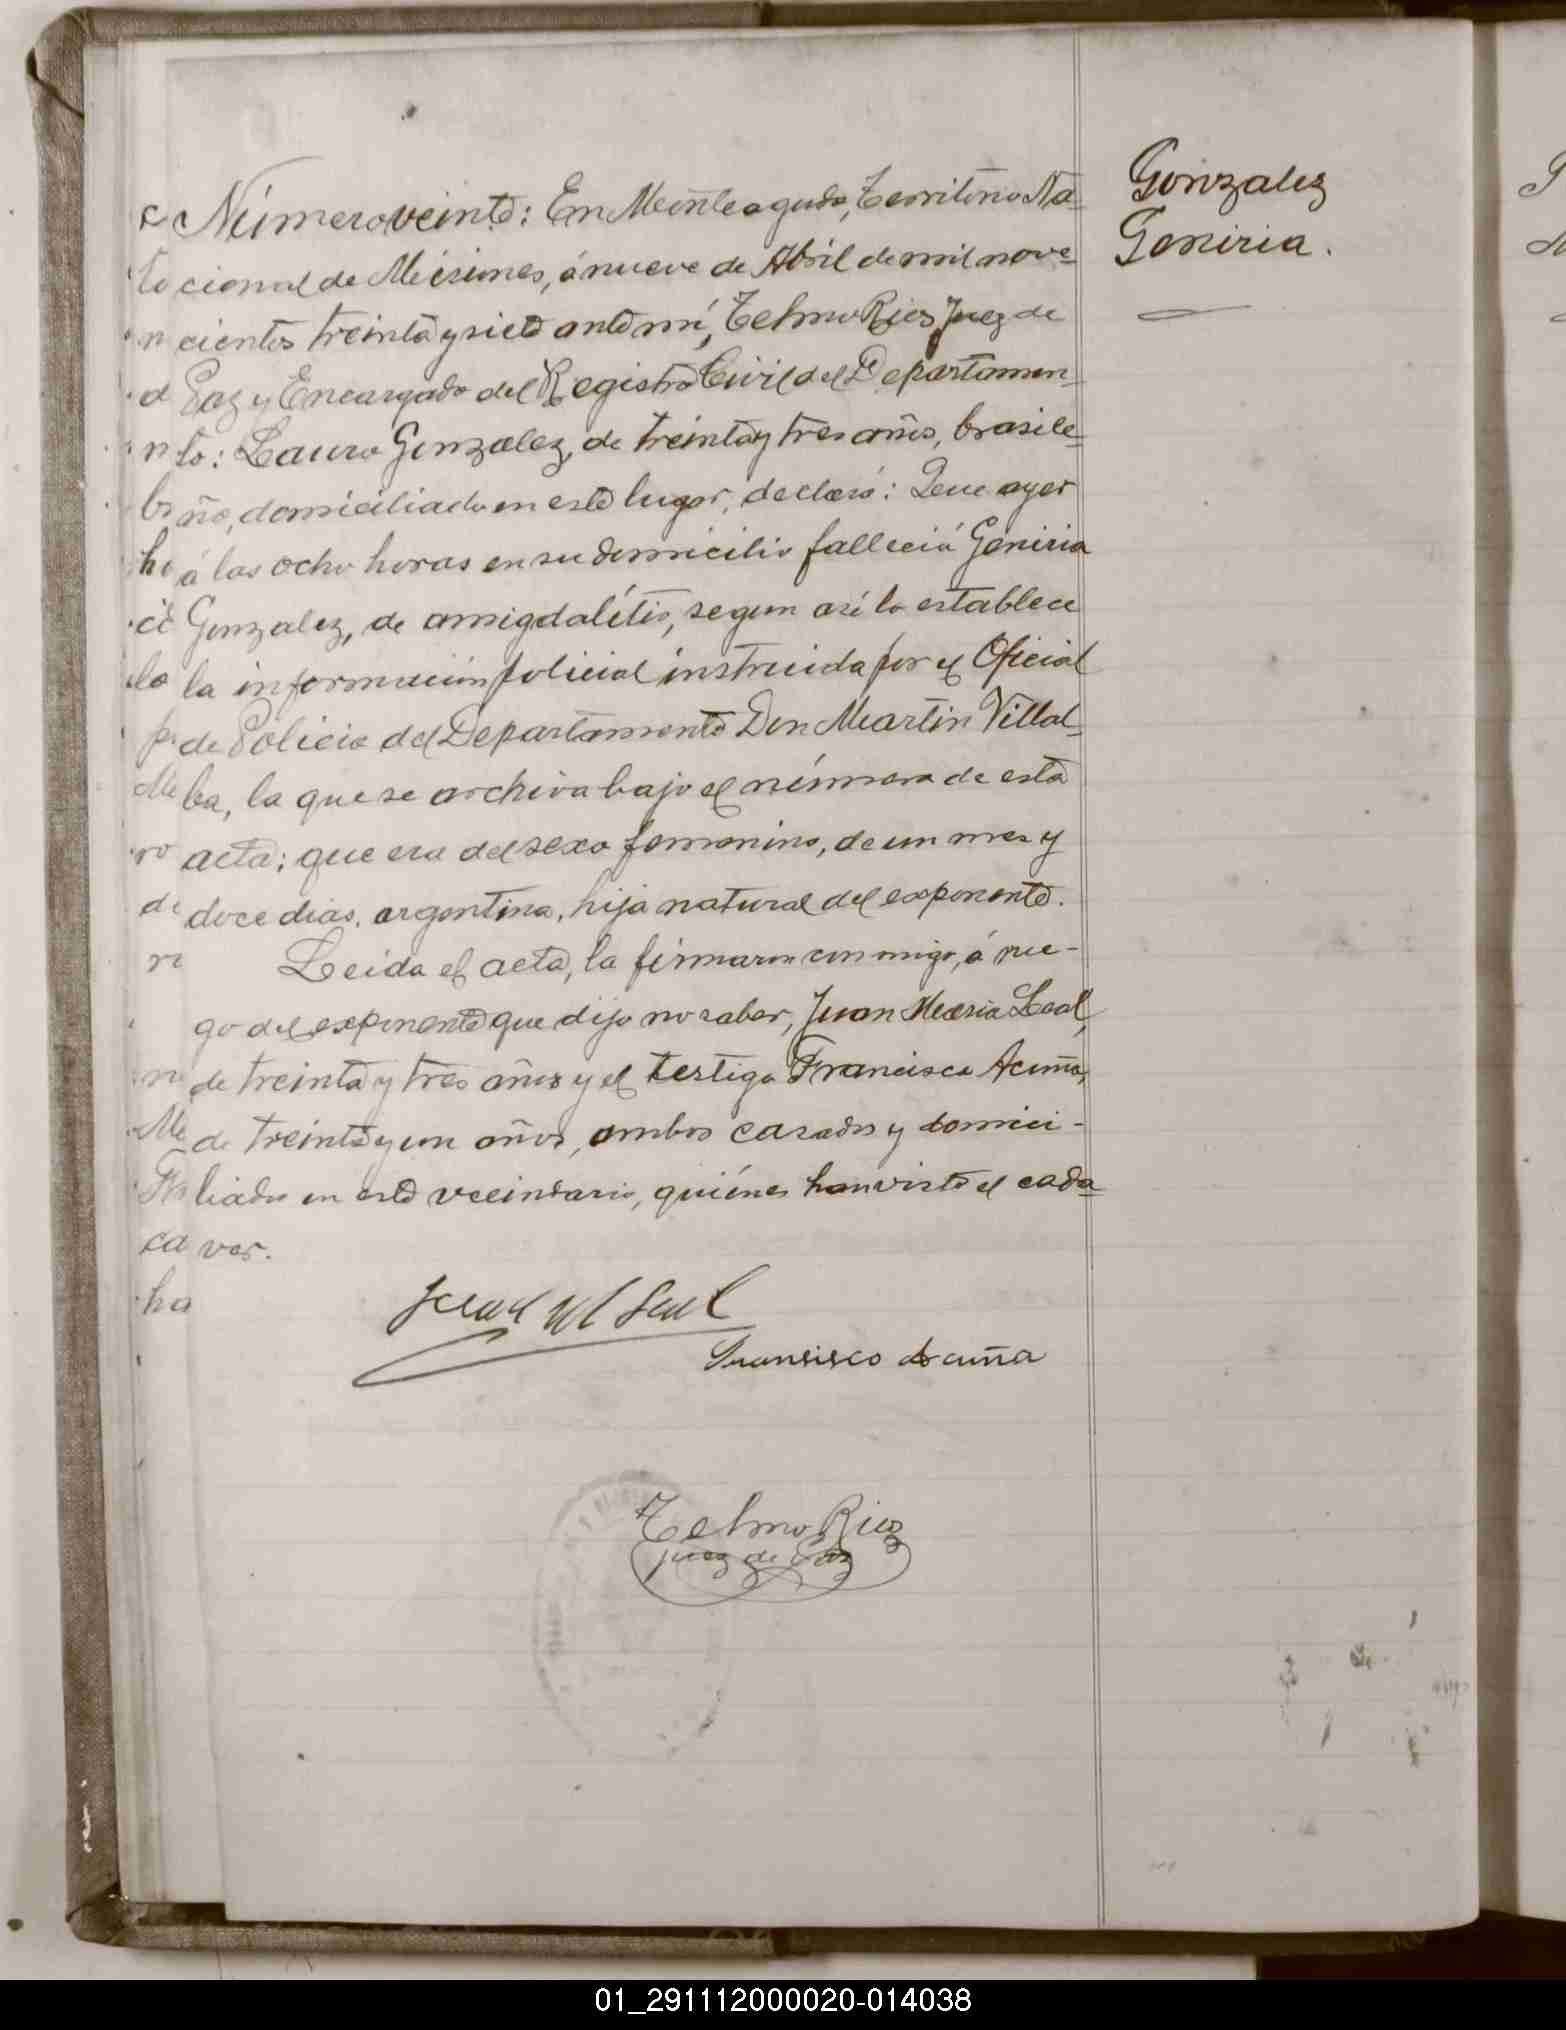 Gonzalez
Geniria.
Número veinte: En Monteagudo, Territorio Na-
cional de Misiones, á nueve de Abril de mil nove-
cientos treinta y siete ante mí, Telmo Rios Juez de
Paz y Encargado del Registro Civil del Departamen-
to: Lauro Gonzalez, de treinta y tres años, brasile-
ño, domiciliado en este lugar, declaró: Que ayer
á las ocho horas en su domicilio falleció Geniria
Gonzalez, de amigdalítis, segun así lo establece
la información policial instruida por el Oficial
de Policia del Departamento Don Martin Villal-
ba, la que se archiva bajo el número de esta
acta; que era del sexo femenino, de un mes y
doce dias, argentina, hija natural del exponente.
Leida el acta, la firmaron conmigo, á rue-
go del exponente que dijo no saber, Juan Maria Leal,
de treinta y tres años y el testigo Francisco Acuña,
de treinta y un años, ambos casados y domici-
liados en este vecindario, quiénes han visto el cada-
ver.
Juan M Leal
Fransisco Acuña
Telmo Rios
Juez de Paz
01_291112000020-014038